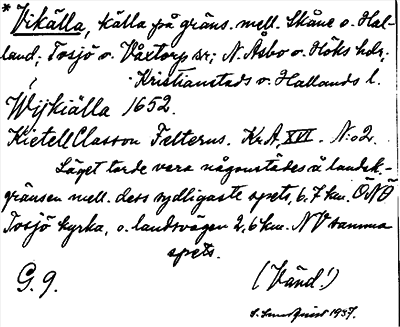 * Vikälla, källa på gräns. mell. Skåne o. Hal-
land; Tosjö o. Våxtorp sr; N. Åsbo o. Höks hdr;
Kristianstads o. Hallands l.
Wijkiälla 1652.
Kietell Classon Felterus. Kr.A. XVI. No 2.
Läget torde vara någonstädes å landsk.-
gränsen mell. dess sydligaste spets, 6,7 km. ÖNÖ
Tosjö kyrka, o. landsvägen 2,6 km. NV samma
spets.
G. 9. (Vänd!)
1937.